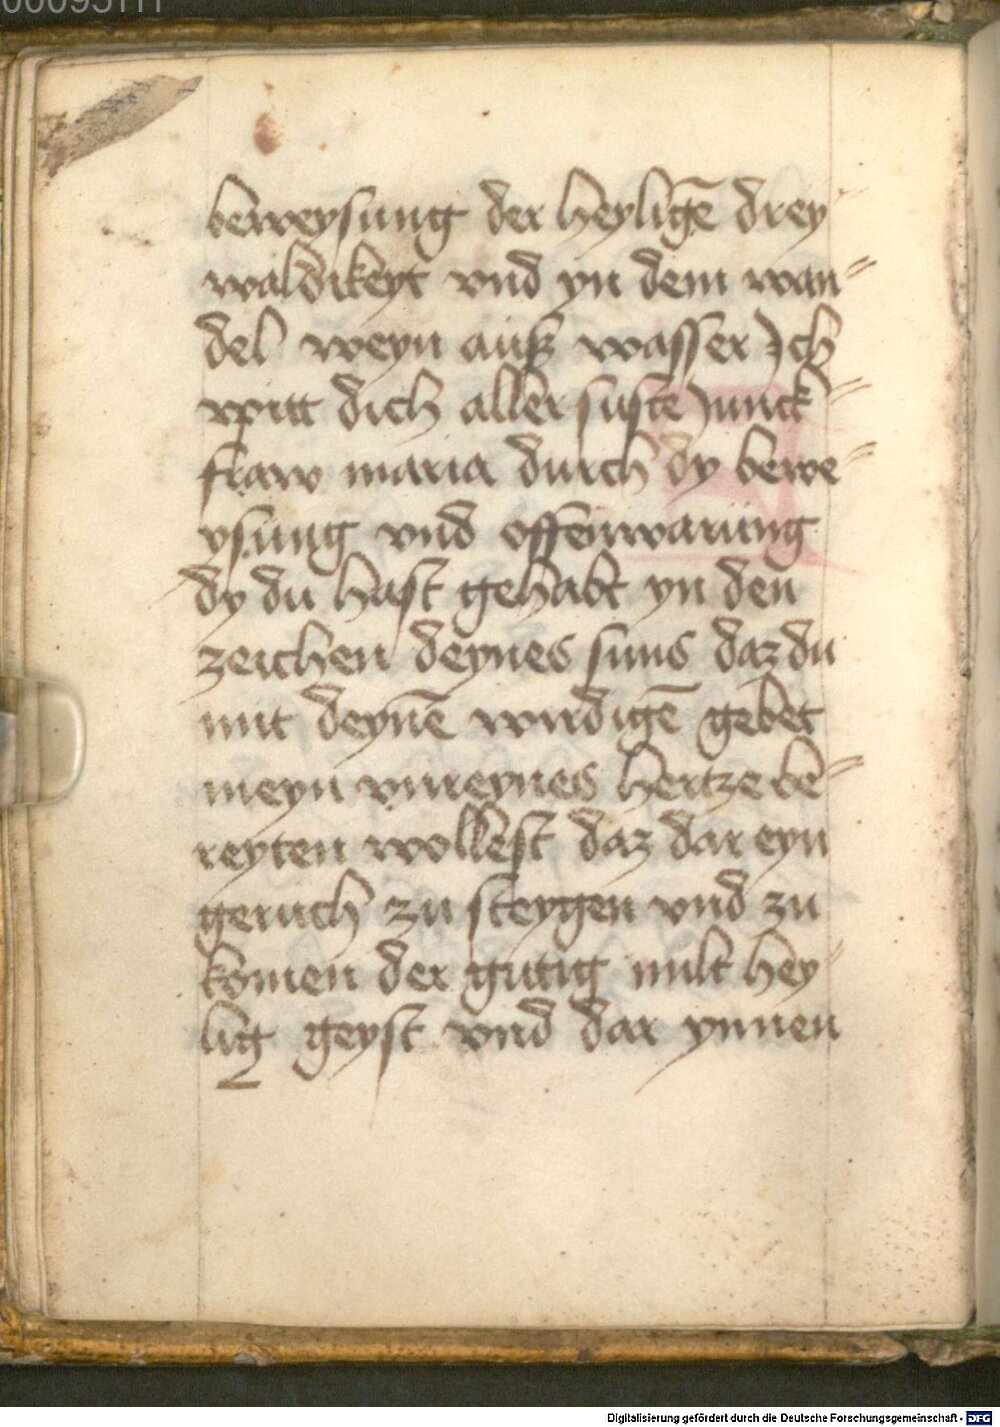 beweysung der heyligē drey
waldikeyt vnd yn dem wan=
del weyn auß wasser Jch
pitt dich aller suste Junck=
fraw maria durch dy bewe=
ysung vnd offenwarung
dy du hast gehabt yn den
zeichen deynes suns daz du
mit deynē wirdigē gebet
meyn vnreynes hertze be=
reyten wollest daz dar eyn
geruch zu steygen vnd zu
komen der gutig milt hey
lig geyst vnd dar ynnen
Digitalisierung gefördert durch die Deutsche Forschungsgemeinschaft - DFG